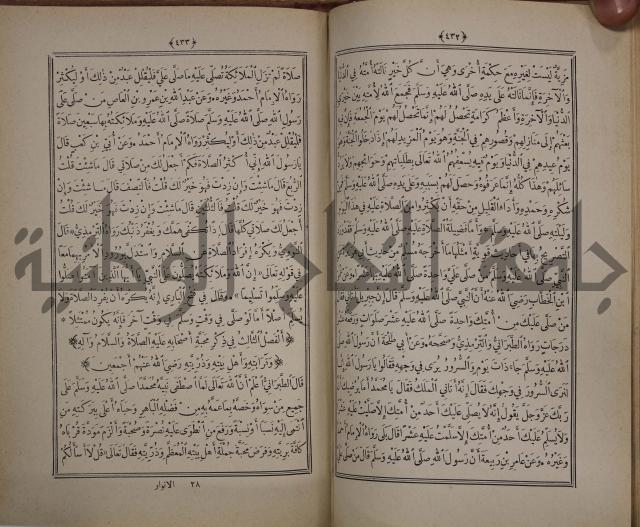 ﴿٤٣٢﴾
مزية ليست لغيره مع حكمة أخرى وهي أن كل خير نالته أمته في الدنيا
والآخرة فإنما نالته على يده صلى الله عليه وسلم فجمع الله لأمته بين خيري
الدنيا والآخرة وأعظم كرامة تحصل لهم إنما تحصل لهم يوم الجمعة فإن فيه
بعثهم إلى منازلهم وقصورهم في الجنة وهو يوم المزيد لهم إذا دخلوا الجنة وهو
يوم عيدهم في الدنيا ويوم فيه يسعفهم الله تعالى بطلباتهم وحوائجهم ولا يرد
سائلهم وهذا كله إنما عرفوه وحصل لهم بسببه وعلى يده صلى الله عليه وسلم فمن
شكره وحمده وأداء القليل من حقه أن يكثروا من الصلاة عليه في هذا اليوم
وليلته صلى الله عليه وسلم وأما فضيلة الصلاة عليه صلى الله عليه وسلم فقد ورد
التصريح بها في أحاديث قوية أمثلها ما أخرجه مسلم من حديث أبي هريرة
صلى الله عليه وسلم من صلى علي واحدة صلى الله عليه
ابن الخطاب رضي الله عنه أن النبي صلى الله عليه وسلم قال إن جبريل
من صلى عليك من أمتك واحدة صلى الله عليه عشر صلوات ورفعه عشر
درجات رواه الطبراني والترمذي وصححه وعن أبي طلحة أن رسول الله صلى
الله عليه وسلم جاء ذات يوم والسرور يرى في وجهه فقالوا يا رسول الله إنا
لنرى السرور في وجهك فقال إنه أتاني الملك فقال يا محمد أما يرضيك أن
ربك عز وجل يقول إنه لا يصلي عليك أحد من أمتك إلا صليت عليه عشرا
ولا يسلم عليك أحد من أمتك إلا سلمت عليه عشرا قال بلى رواه الإمام أحمد
وغيره وعن عامر بن ربيعة أن رسول الله صلى الله عليه وسلم قال من صلى علي
﴿٤٣٣﴾
صلاة لم تزل الملائكة تصلي عليه ما صلى علي فليقلل عبد من ذلك أو ليكثر
رواه الإمام أحمد وغيره وعن عبد الله بن عمرو بن العاص من صلى على
رسول الله صلى الله عليه وسلم صلاة صلى الله عليه وملائكته بها سبعين صلاة
فليقلل عبد من ذلك أو ليكثر رواه الإمام أحمد وعن أبي بن كعب قال
يا رسول الله إني أكثر الصلاة فكم أجعل لك من صلاتي قال ما شئت قلت
الربع قال ما شئت وإن زدت فهو خير لك قلت فالنصف قال ما شئت وإن
زدت فهو خير لك قلت فالثلثين قال ما شئت وإن زدت فهو خير لك قلت
أجعل لك صلاتي كلها قال إذا تكفى همك ويغفر لك ذنبك رواه الترمذي قال
النووي ويكره إفراد الصلاة عن السلام واستدل بورود الأمر بهما معا
في قوله تعالى إن الله وملائكته يصلون على النبي يا أيها الذين آمنوا صلوا
عليه وسلموا تسليما وقال في فتح الباري إنه يكره أن يفرد الصلاة ولا
يسلم أصلا أما لو صلى في وقت وسلم في وقت آخر فإنه يكون ممتثلا
﴿الفصل الثالث في ذكر محبة أصحابه عليه الصلاة والسلام وآله﴾
﴿وقرابته وأهل بيته وذريته رضي الله عنهم أجمعين﴾
قال الطبراني اعلم أن الله تعالى لما اصطفى نبيه محمدا صلى الله عليه وسلم على
جميع من سواه وخصه بما عمه به من فضله الباهر وحباه أعلى ببركته من
انتمى إليه نسبا أو نسبة ورفع من انطوى عليه نصرة وصحبة وألزم مودة قرباه
كافة بريته وفرض محبة جملة أهل بيته المعظم وذريته فقال تعالى قل لا أسألكم
٢٨ الانوار
جامعة النجاح الوطنية